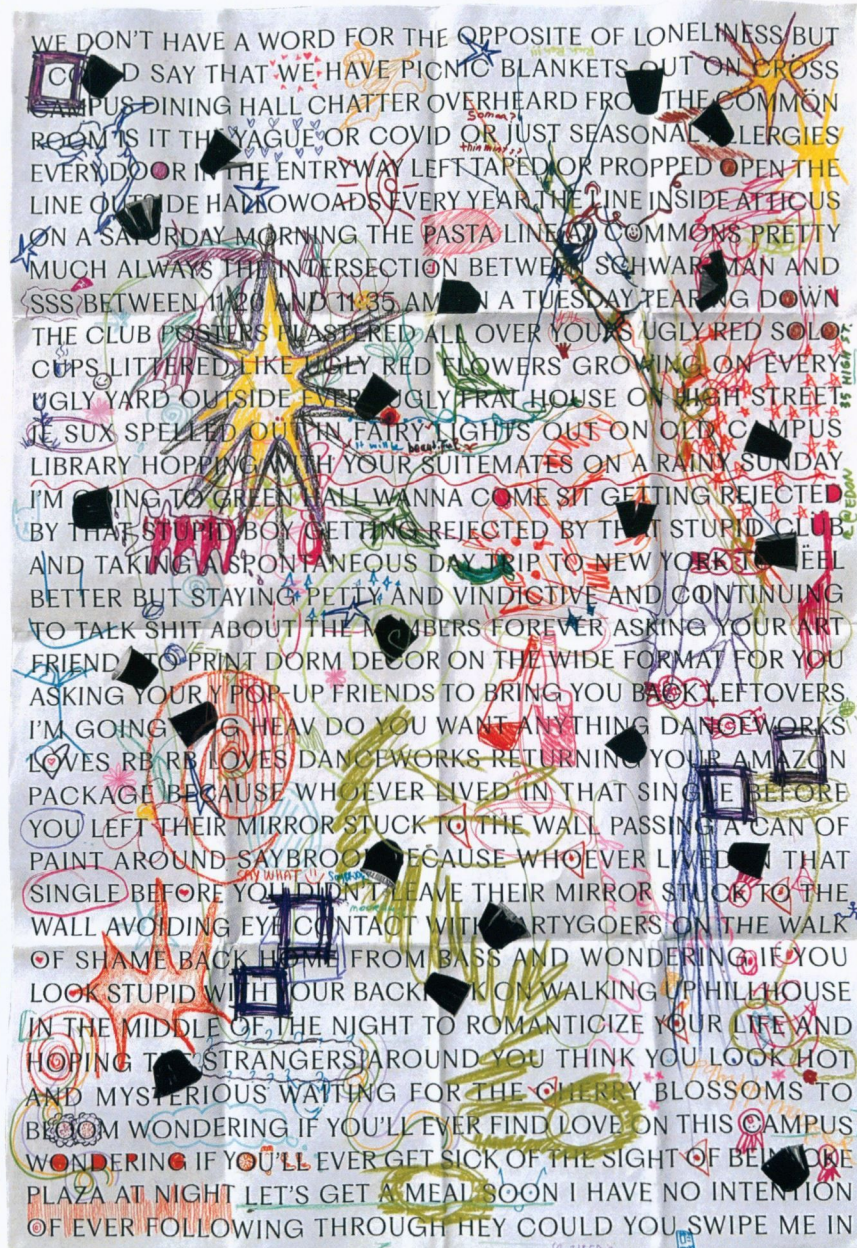 WE DON'T HAVE A WORD FOR THE OPPOSITE OF LONELINESS BUT
COULD SAY THAT WE HAVE PICNIC BLANKETS OUT ON CROSS
CAMPUS DINING HALL CHATTER OVERHEARD FROM THE COMMON
ROOM IS IT THE YAGUE OR COVID OR JUST SEASONAL ALLERGIES
thin mints??
EVERY DOOR IN THE ENTRYWAY LEFT TAPED OR PROPPED OPEN THE
LINE OUTSIDE HALLOWOADS EVERY YEAR THE LINE INSIDE ATTICUS
ON A SATURDAY MORNING THE PASTA LINE AT COMMONS PRETTY
MUCH ALWAYS THE INTERSECTION BETWEEN SCHWARZMAN AND
SSS BETWEEN 11:20 AND 11:35 AM ON A TUESDAY TEARING DOWN
THE CLUB POSTERS PLASTERED ALL OVER YOURS UGLY RED SOLO
CUPS LITTERED LIKE UGLY RED FLOWERS GROWING ON EVERY
35 HIGH ST.
UGLY YARD OUTSIDE EVERY UGLY FRAT HOUSE ON HIGH STREET
JE SUX SPELLED OUT IN FAIRY LIGHTS OUT ON OLD CAMPUS
LIBRARY HOPPING WITH YOUR SUITEMATES ON A RAINY SUNDAY
I'M GOING TO GREEN HALL WANNA COME SIT GETTING REJECTED
BY THAT STUPID BOY GETTING REJECTED BY THAT STUPID CLUB
AND TAKING A SPONTANEOUS DAY TRIP TO NEW YORK TO FEEL
BETTER BUT STAYING PETTY AND VINDICTIVE AND CONTINUING
TO TALK SHIT ABOUT THE MEMBERS FOREVER ASKING YOUR ART
FRIENDS TO PRINT DORM DECOR ON THE WIDE FORMAT FOR YOU
ASKING YOUR Y POP-UP FRIENDS TO BRING YOU BACK LEFTOVERS
I'M GOING TO G HEAV DO YOU WANT ANYTHING DANCEWORKS
LOVES RB RB LOVES DANCEWORKS RETURNING YOUR AMAZON
PACKAGE BECAUSE WHOEVER LIVED IN THAT SINGLE BEFORE
YOU LEFT THEIR MIRROR STUCK TO THE WALL PASSING A CAN OF
PAINT AROUND SAYBROOK BECAUSE WHOEVER LIVED IN THAT
SAY WHAT !!
SINGLE BEFORE YOU DIDN'T LEAVE THEIR MIRROR STUCK TO THE
WALL AVOIDING EYE CONTACT WITH PARTYGOERS ON THE WALK
OF SHAME BACK HOME FROM BASS AND WONDERING IF YOU
LOOK STUPID WITH YOUR BACKPACK ON WALKING UP HILLHOUSE
IN THE MIDDLE OF THE NIGHT TO ROMANTICIZE YOUR LIFE AND
HOPING THE STRANGERS AROUND YOU THINK YOU LOOK HOT
AND MYSTERIOUS WAITING FOR THE CHERRY BLOSSOMS TO
BLOOM WONDERING IF YOU'LL EVER FIND LOVE ON THIS CAMPUS
WONDERING IF YOU'LL EVER GET SICK OF THE SIGHT OF BEINECKE
PLAZA AT NIGHT LET'S GET A MEAL SOON I HAVE NO INTENTION
OF EVER FOLLOWING THROUGH HEY COULD YOU SWIPE ME IN